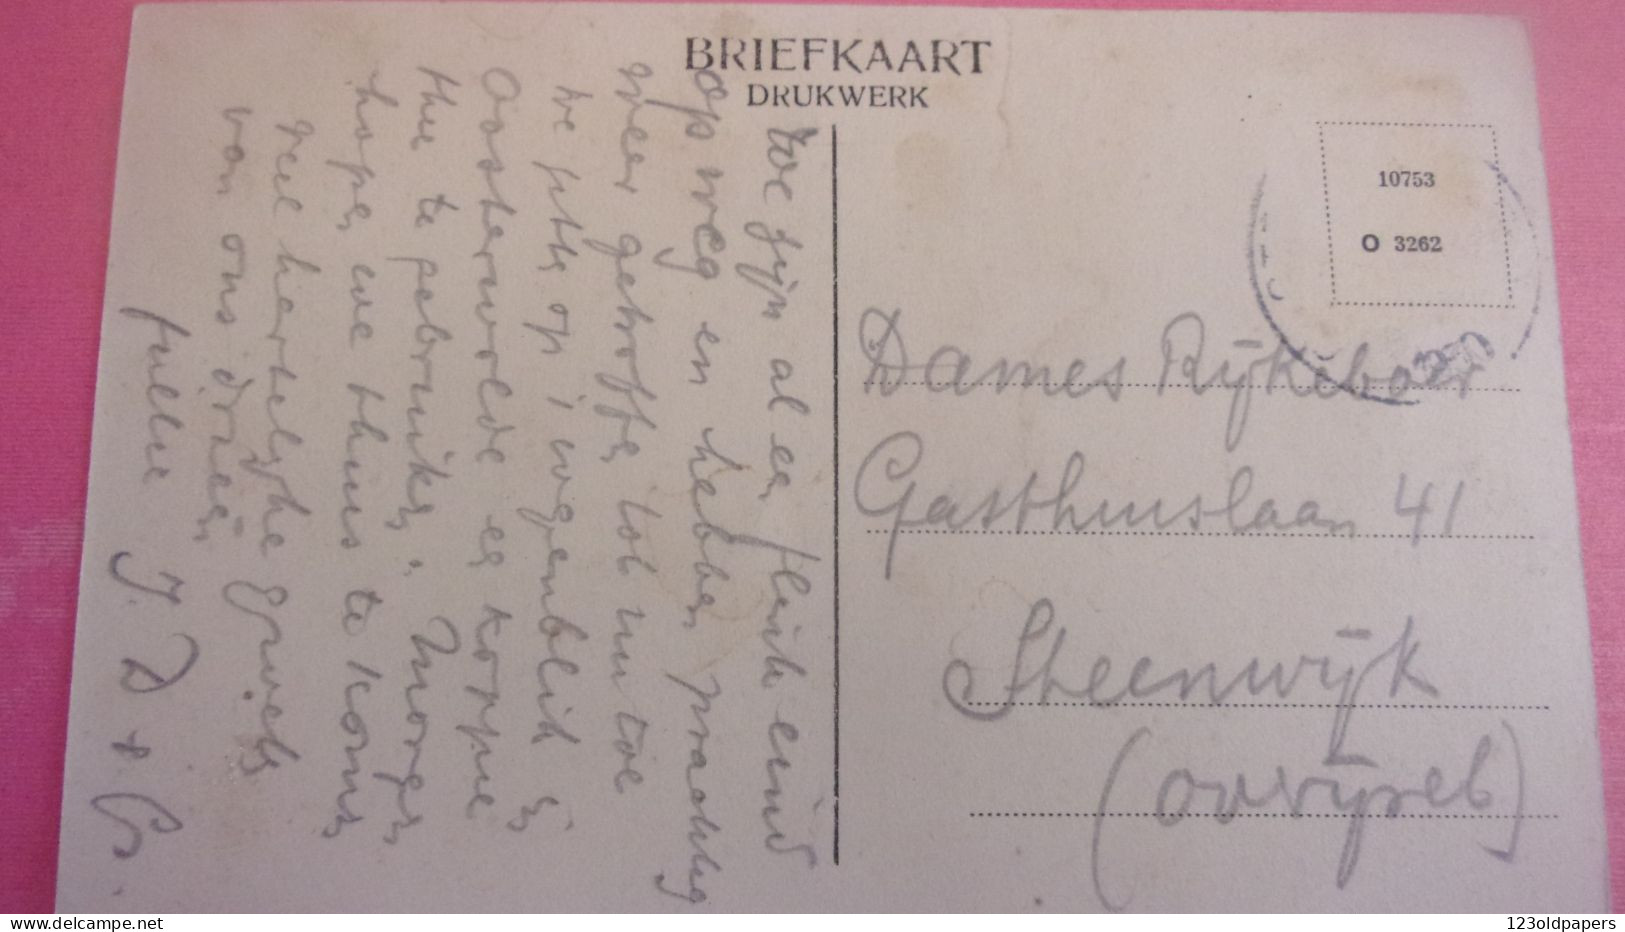 BRIEFKAART
DRUKWERK
We zijn al een flink eind
op weg en hebben prachtig
weer getroffen tot nu toe
we zitten op 't oogenblik in
Oosterwolde en kopje
thee te gebruiken. Morgen
hopen we thuis te komen
veel hartelijke groeten
van ons drieën
J. D + G.
10753
O 3262
Dames Rijkeboer
Gasthuislaan 41
Steenwijk
(Overijsel)
123oldpapers